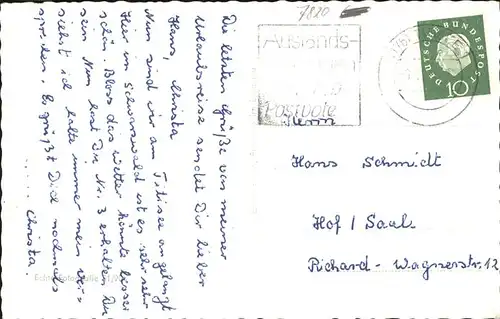 7820
Auslands-
Postbote
DEUTSCHE BUNDESPOST
10
Herrn
Hans Schmidt
Hof / Saale
Richard-Wagnerstr. 12
Die letzten Grüße von meiner
Urlaubsreise sendet Dir lieber
Hans, Christa
Nun sind wir am Titisee angelangt
Hier im Schwarzwald ist es sehr sehr
schön. Bloss das Wetter könnte besser
sein Nun hast Du Nr. 3 erhalten, Du
siehst ich halte immer mein Ver-
sprechen. Es grüßt Dich nochmals
..... Christa.